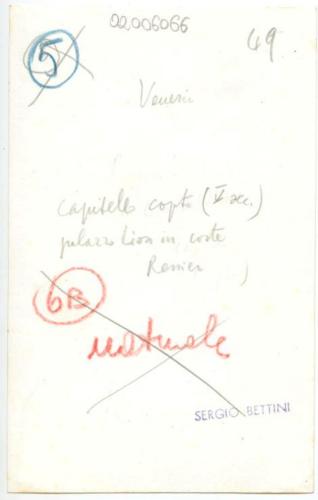 22,006066
5
49
Venezia
capitello copto (V sec.)
palazzo Lion in corte
Remer
6B
naturale
SERGIO BETTINI